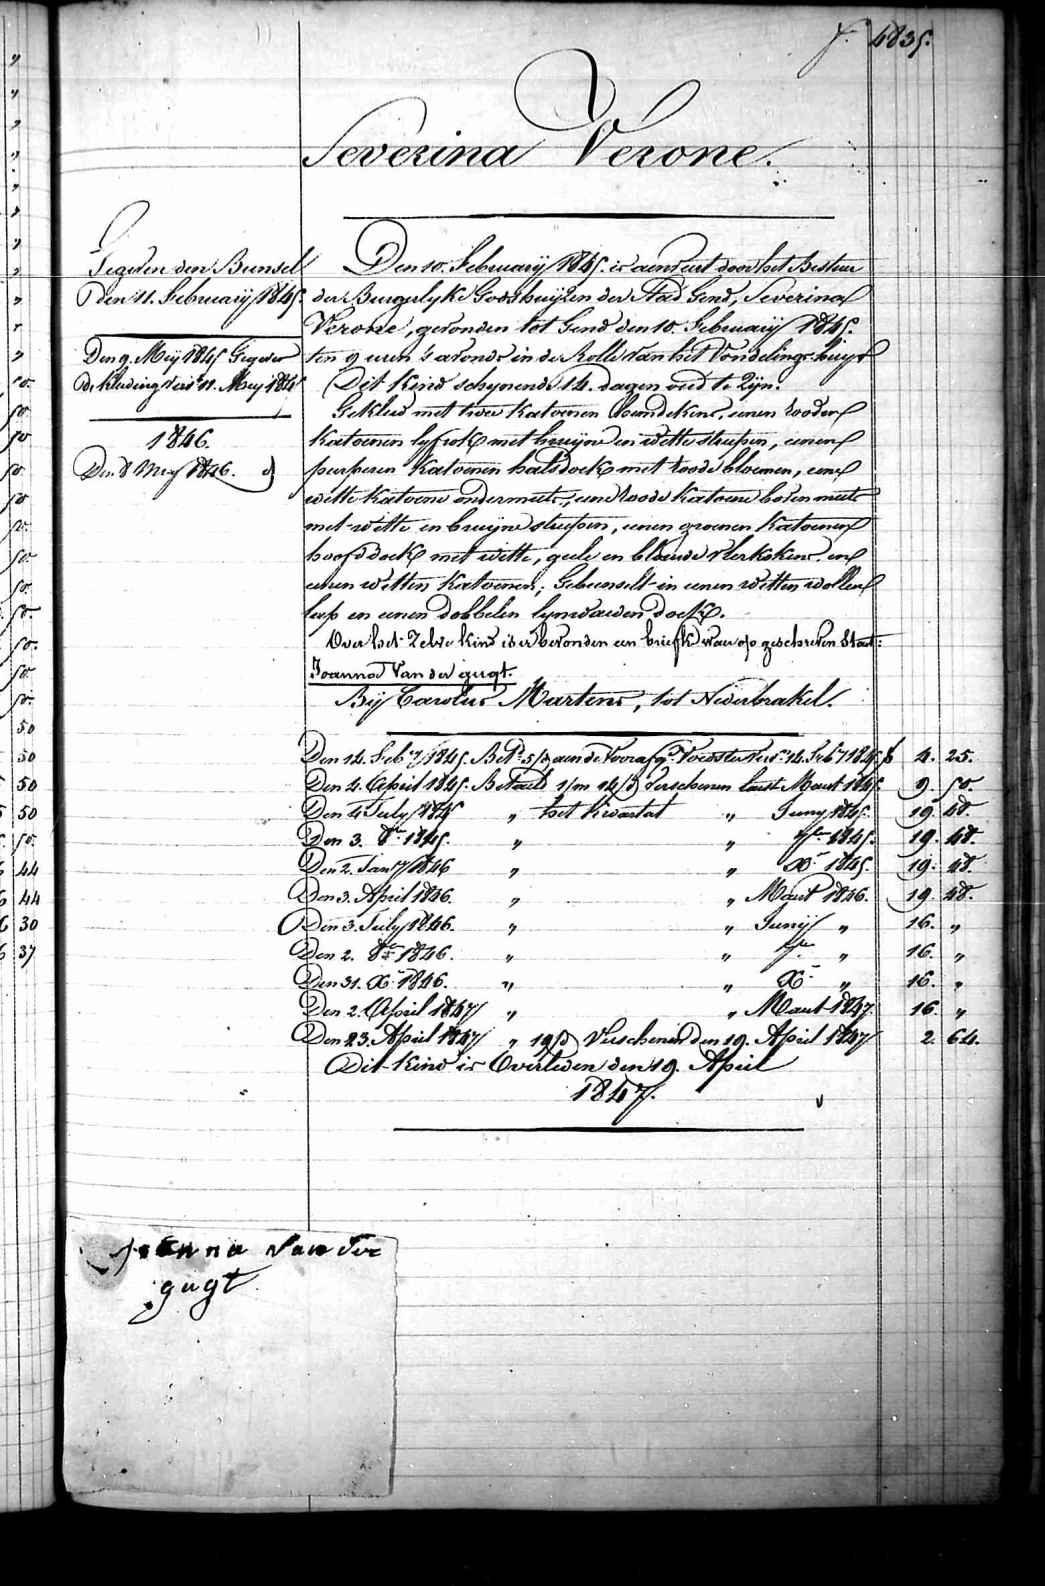 f. 4835.
Severina Verone.
Gegeven den Bunsel
Den 11. February 1845.
Den 9. Mey 1845 Gegeven
de kleding vers. 11. Mey 1845
1846.
Den 8 Mey 1846.
Den 10. February 1845. is aenveirt door het Bestier
der Burgerlyke Godshuyzen der Stad Gend, Severina
Verone, gevonden tot Gend den 10. February 1845.
ten 9 uren 's avonds in de Rolle van het Vondelings-huys
Dit kind schynende 14. dagen oud te zyn.
Gekleed met twee katoenen bemdekens, eenen rooden
katoenen lyfrok met bruyne en witte streepen, eenen
purperen katoenen halsdoek met roode bloemen, eene
witte katoene ondermuts, eene roode katoene boven muts
met witte en bruyne streepen, eenen groenen katoenen
hoofddoek met witte, geele en blauwe vlekskens en
eenen witten katoenen; Gebunselt in eenen witten wollen
lap en eenen dobbelen lynwaeden doek.
Over het zelve kind is er bevonden een briefke waer op geschreven Staet:
Joanna Van der gugt.
By Carolus Martens, tot Nederbrakel.
Den 14. Feb.y 1845. Bet.d 5/d aen de Vooraf.g Voedster Vers. 14. Feb.y 1845. f 4. 25.
Den 4. April 1845. Betaeld 1/m 14/d Verschenen laest Maert 1845. 9. 50.
Den 4 July 1845 " het kwartael " Juny 1845. 19. 48.
Den 3. 8.re 1845. " " 7.re 1845. 19. 48.
Den 2. Jan.y 1846 " " X.re 1845. 19. 48.
Den 3. April 1846. " " Maert 1846. 19. 48.
Den 3. July 1846. " " Juny " 16. "
Den 2. 8.re 1846. " " 7.re " 16. "
Den 31. X.re 1846. " " X.re " 16. "
Den 2. April 1847 " " Maert 1847. 16. "
Den 23. April 1847 " 19/d Verschenen den 19. April 1847 2. 64.
Dit kind is Overleden den 19. April
1847.
Joanna Van der
gugt
50
50
50
50
50
44
44
30
37